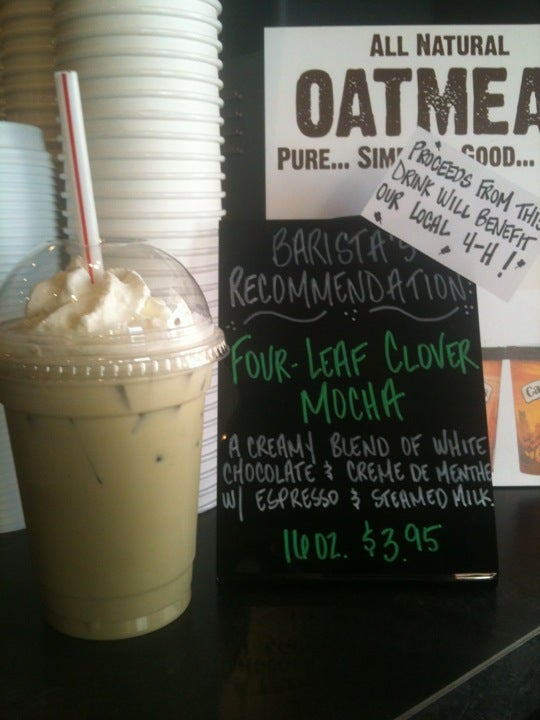 ALL NATURAL
OATMEA
PURE... SIM GOOD...
PROCEEDS FROM THIS
DRINK WILL BENEFIT
OUR LOCAL 4-H!
BARISTA'S
RECOMMENDATION:
FOUR-LEAF CLOVER
MOCHA
A CREAMY BLEND OF WHITE
CHOCOLATE & CREME DE MENTHE
W/ ESPRESSO & STEAMED MILK.
16 OZ. $3.95